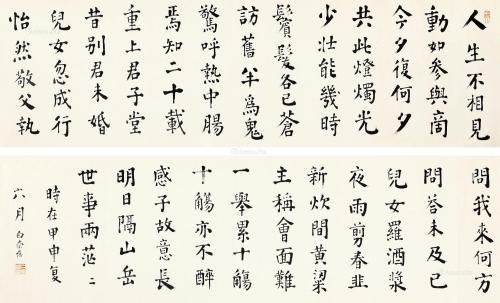 人生不相見
動如參與商
今夕復何夕
共此燈燭光
少壯能幾時
鬢髮各已蒼
訪舊半為鬼
驚呼熱中腸
焉知二十載
重上君子堂
昔別君未婚
兒女忽成行
怡然敬父執
問我來何方
問答未及已
兒女羅酒漿
夜雨剪春韭
新炊間黃粱
主稱會面難
一舉累十觴
十觴亦不醉
感子故意長
明日隔山岳
世事兩茫〻
時在甲申夏
六月 白崇禧